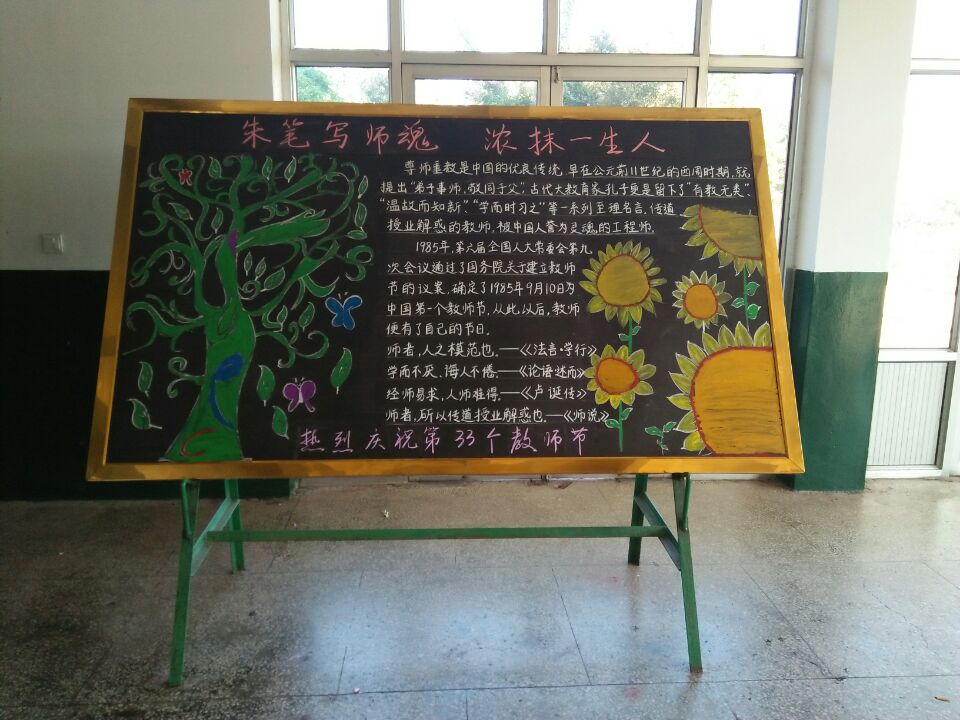 朱笔写师魂 浓抹一生人
尊师重教是中国的优良传统，早在公元前11世纪的西周时期，就
提出“弟子事师，敬同于父”，古代大教育家孔子更是留下了“有教无类”、
“温故而知新”、“学而时习之”等一系列至理名言，传道
授业解惑的教师，被中国人誉为灵魂的工程师。
1985年，第六届全国人大常委会第九
次会议通过了国务院关于建立教师
节的议案，确定了1985年9月10日为
中国第一个教师节，从此以后，教师
便有了自己的节日。
师者，人之模范也。——《法言·学行》
学而不厌，诲人不倦。——《论语·述而》
经师易求，人师难得。——《卢诞传》
师者，所以传道授业解惑也。——《师说》
热烈庆祝第33个教师节